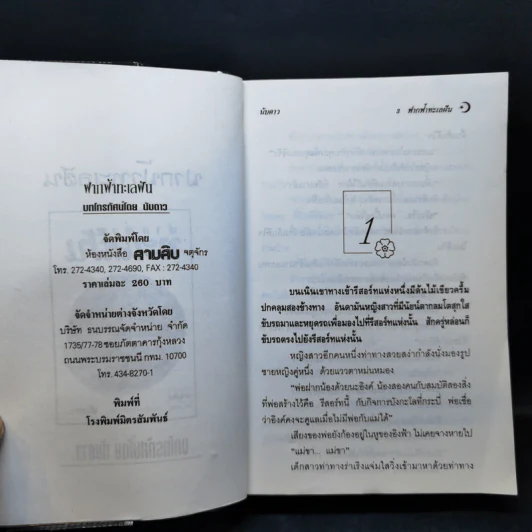 ฟากฟ้าทะเลฝัน
บทโทรทัศน์โดย นับดาว
จัดพิมพ์โดย
ห้องหนังสือ สามสิบ จตุจักร
โทร. 272-4340, 272-4690, FAX : 272-4340
ราคาเล่มละ 260 บาท
จัดจำหน่ายต่างจังหวัดโดย
บริษัท ธนบรรณจัดจำหน่าย จำกัด
1735/77-78 ซอยภัตตาคารกุ้งหลวง
ถนนพระบรมราชชนนี กทม. 10700
โทร. 434-8270-1
พิมพ์ที่
โรงพิมพ์มิตรสัมพันธ์
นับดาว 3 ฟากฟ้าทะเลฝัน
1
บนเนินเขาทางเข้ารีสอร์ทแห่งหนึ่งมีต้นไม้เขียวครึ้ม
ปกคลุมสองข้างทาง อันดามันหญิงสาวที่มีนัยน์ตากลมโตสุกใส
ขับรถมาและหยุดรถเพื่อมองไปที่รีสอร์ทแห่งนั้น สักครู่หล่อนก็
ขับรถตรงไปยังรีสอร์ทแห่งนั้น
หญิงสาวอีกคนหนึ่งท่าทางสวยสง่ากำลังนั่งมองรูป
ชายหญิงคู่หนึ่ง ด้วยแววตาหม่นหมอง
“พ่อฝากน้องด้วยนะอิงค์ น้องสองคนกับสมบัติสองสิ่ง
ที่พ่อสร้างไว้คือ รีสอร์ทนี้ กับกิจการบังกะโลที่กระบี่ พ่อเชื่อ
ว่าอิงค์คงจะดูแลเมื่อไม่มีพ่อกับแม่ได้”
เสียงของพ่อยังก้องอยู่ในหูของอิงฟ้า ไม่เคยจางหายไป
“แม่ขา... แม่ขา”
เด็กสาวท่าทางร่าเริงแจ่มใสวิ่งเข้ามาหาด้วยท่าทาง